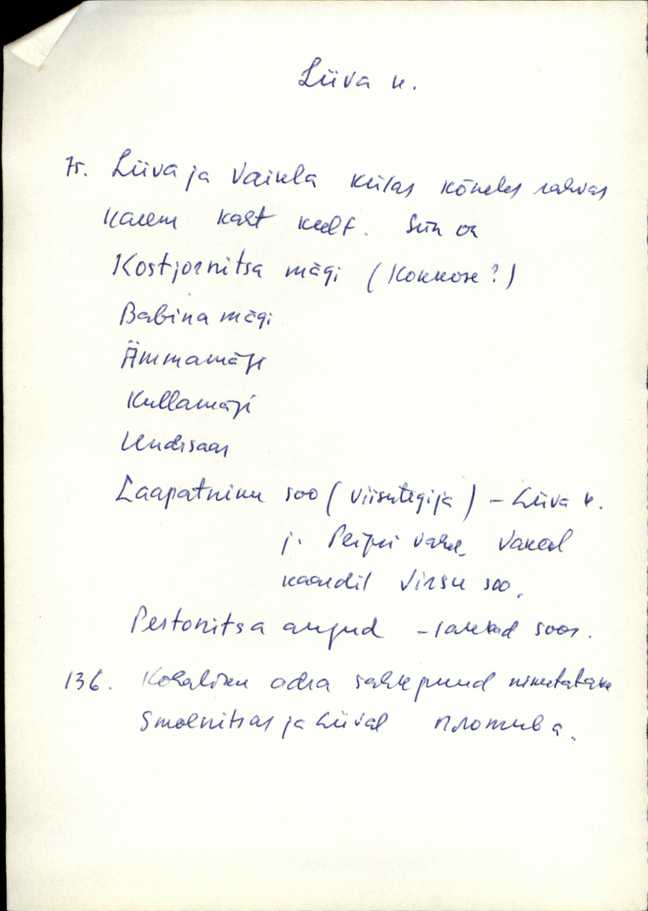 Liiva k.
75. Liiva ja Vaikla külas kõneles rahvas
karem kaht keelt. Siin on
Kostjornitsa mägi (Kokkose?)
Babina mägi
Ämmamägi
Kullamägi
Undisaar
Laapatniku soo (viisutegija) – Liiva k.
j. Peipsi vahel. Vaked
kaardil Virsu soo.
Pestonitsa augud – lakekad soos.
136. Kohaliku adra sahkpuud nimetatakse
Smolnitsas ja Liival плотива.